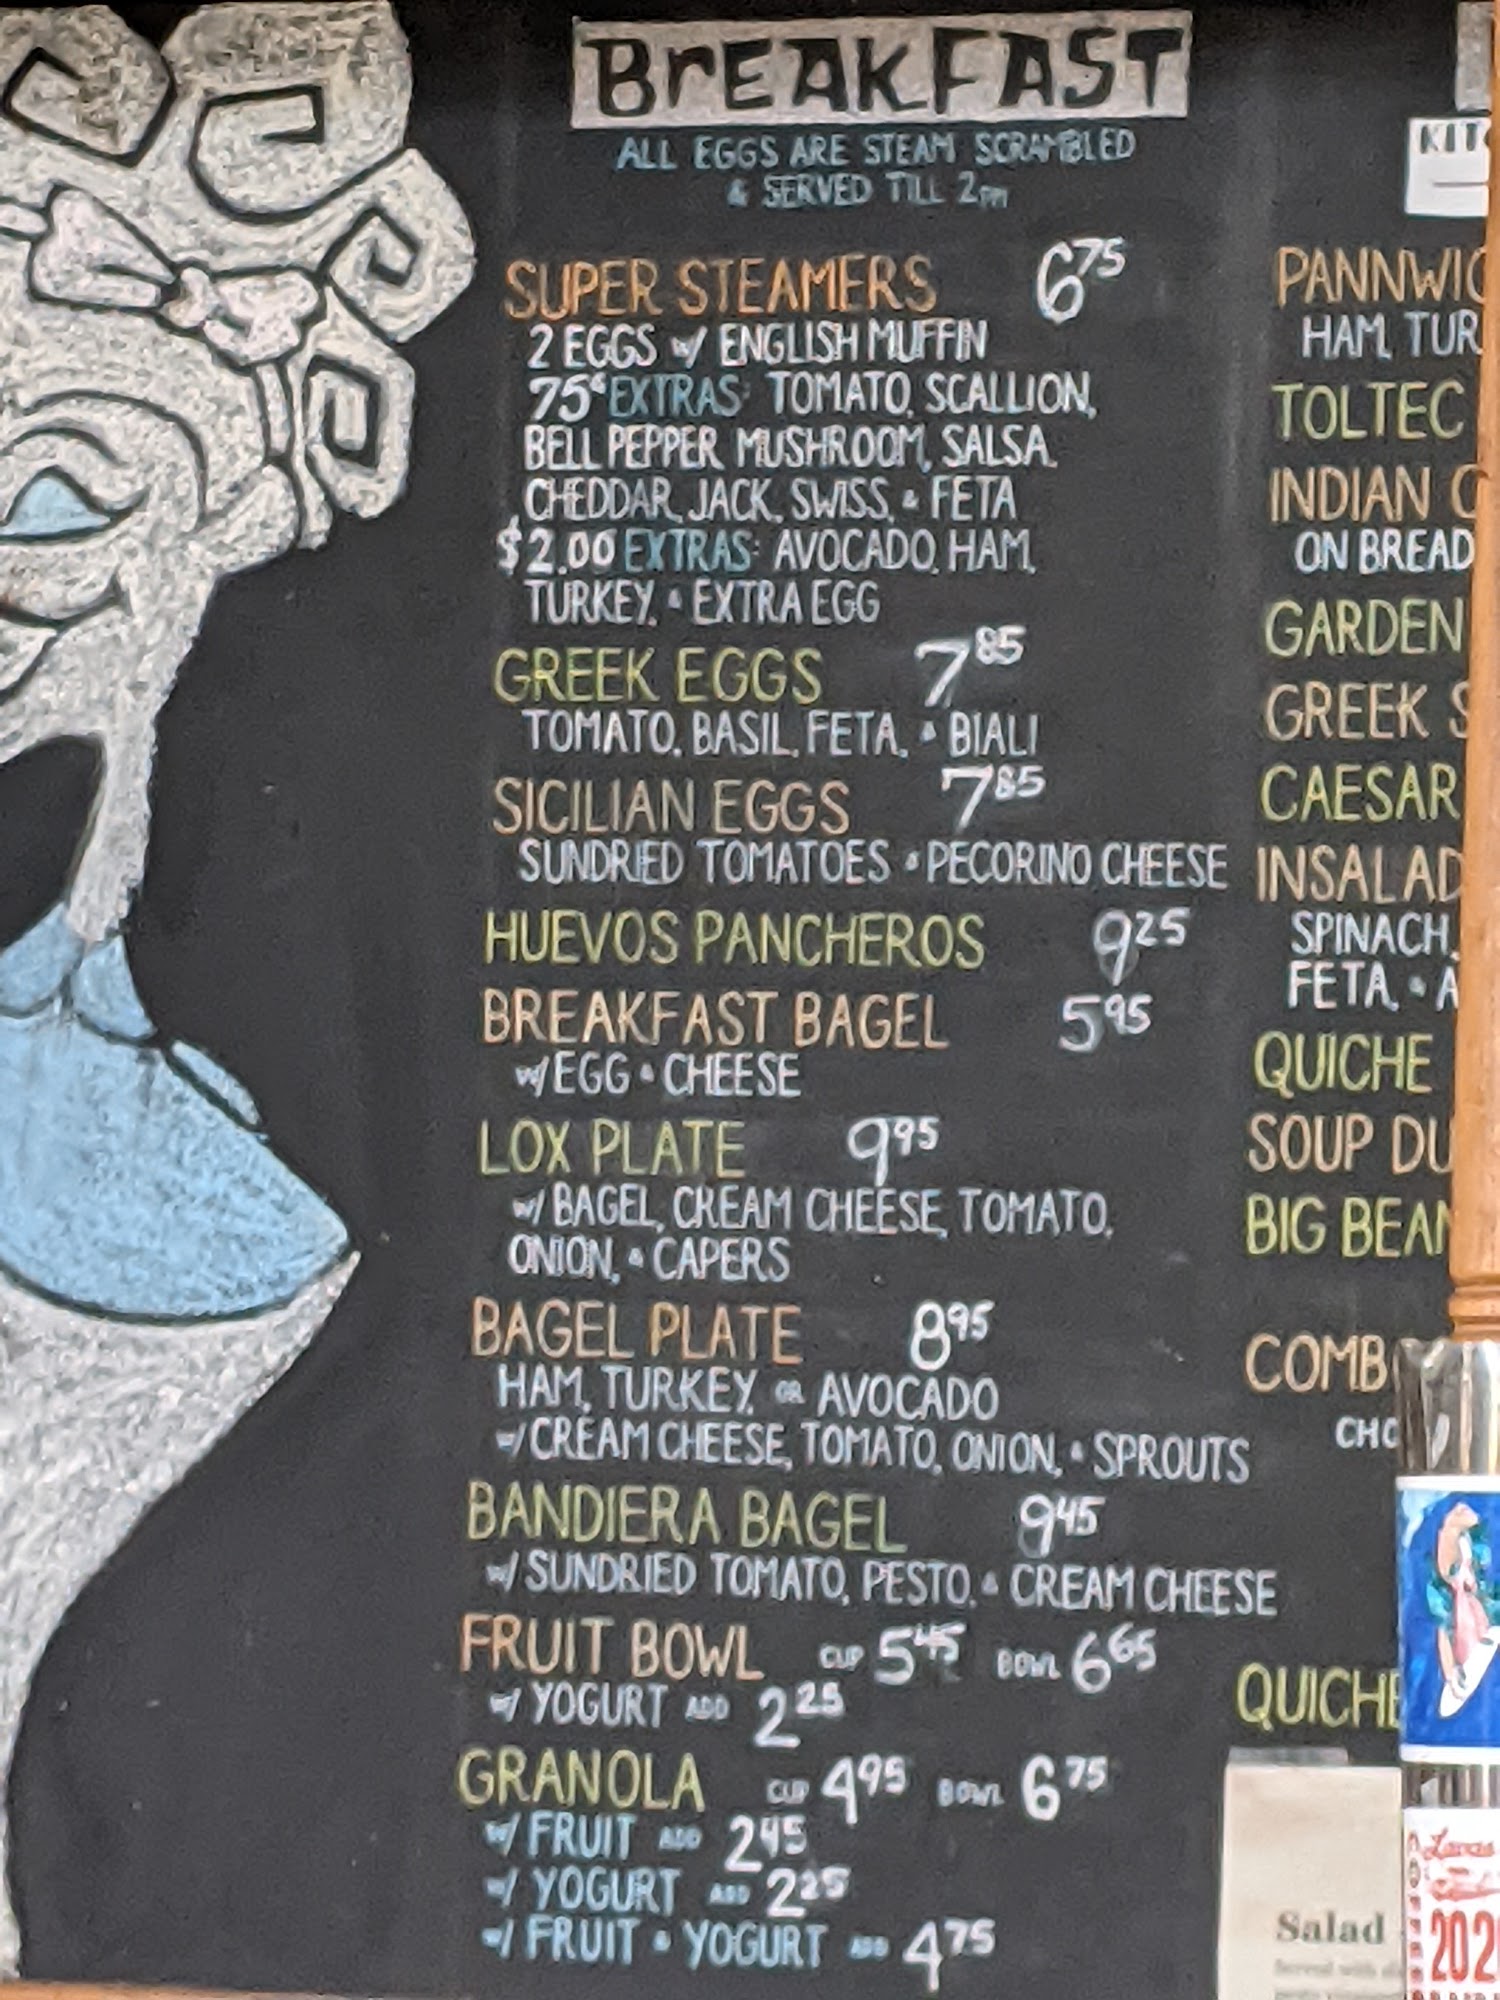 BREAKFAST
ALL EGGS ARE STEAM SCRAMBLED
& SERVED TILL 2pm
SUPER STEAMERS 6 75
2 EGGS w/ ENGLISH MUFFIN
75¢ EXTRAS: TOMATO, SCALLION,
BELL PEPPER, MUSHROOM, SALSA,
CHEDDAR, JACK, SWISS, & FETA
$2.00 EXTRAS: AVOCADO, HAM,
TURKEY, & EXTRA EGG
GREEK EGGS 7 85
TOMATO, BASIL, FETA, & BIALI
SICILIAN EGGS 7 85
SUNDRIED TOMATOES & PECORINO CHEESE
HUEVOS PANCHEROS 9 25
BREAKFAST BAGEL 5 95
w/ EGG & CHEESE
LOX PLATE 9 95
w/ BAGEL, CREAM CHEESE, TOMATO,
ONION, & CAPERS
BAGEL PLATE 8 95
HAM, TURKEY, OR AVOCADO
w/ CREAM CHEESE, TOMATO, ONION, & SPROUTS
BANDIERA BAGEL 9 45
w/ SUNDRIED TOMATO, PESTO, & CREAM CHEESE
FRUIT BOWL CUP 5 45 BOWL 6 65
w/ YOGURT ADD 2 25
GRANOLA CUP 4 95 BOWL 6 75
w/ FRUIT ADD 2 45
w/ YOGURT ADD 2 25
w/ FRUIT & YOGURT ADD 4 75
KITC
PANNWIC
HAM, TUR
TOLTEC
INDIAN C
ON BREAD
GARDEN
GREEK S
CAESAR
INSALAD
SPINACH,
FETA, & A
QUICHE
SOUP DU
BIG BEAN
COMB
CHO
QUICHE
Salad
202